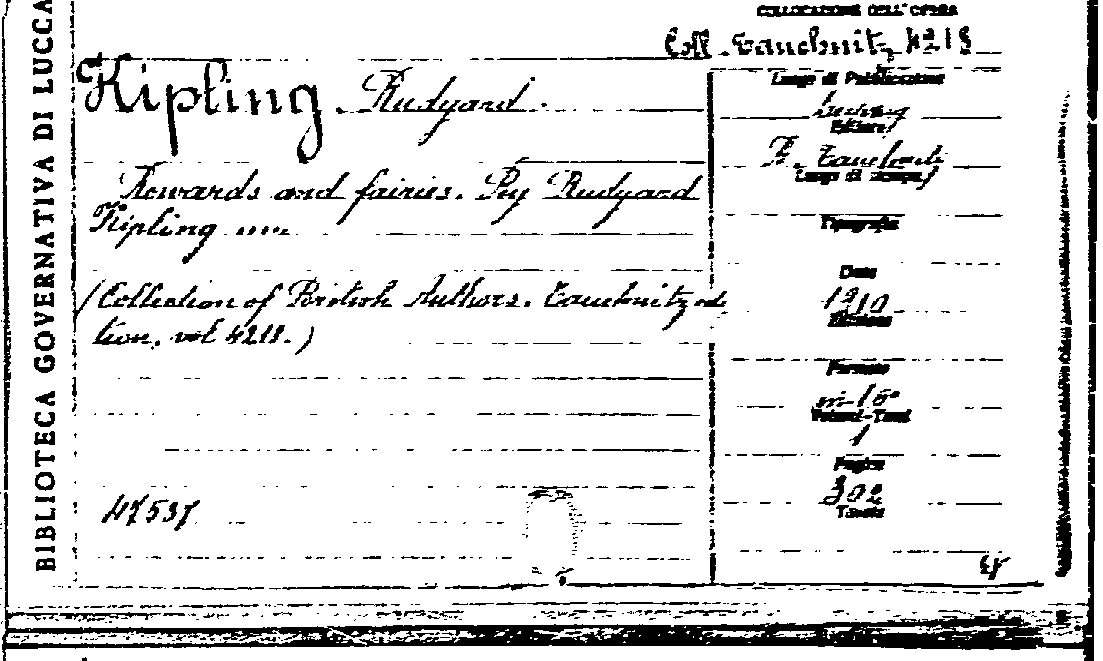 BIBLIOTECA GOVERNATIVA DI LUCCA
COLLOCAZIONE DELL'OPERA
Coll. Tauchnitz 4213
Kipling Rudyard.
Rewards and fairies. By Rudyard
Kipling
(Collection of British Authors. Tauchnitz edi
tion. vol 4211.)
47537
Luogo di Pubblicazione
Editore
B. Tauchnitz
Luogo di stampa
Tipografia
Data
1910
Edizione
Formato
in-16°
Volumi-Tomi
1
Pagine
302
Tavole